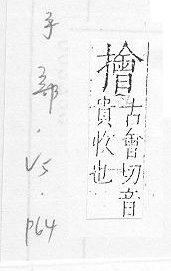 古會切音
貴收也
手部.V5.P64